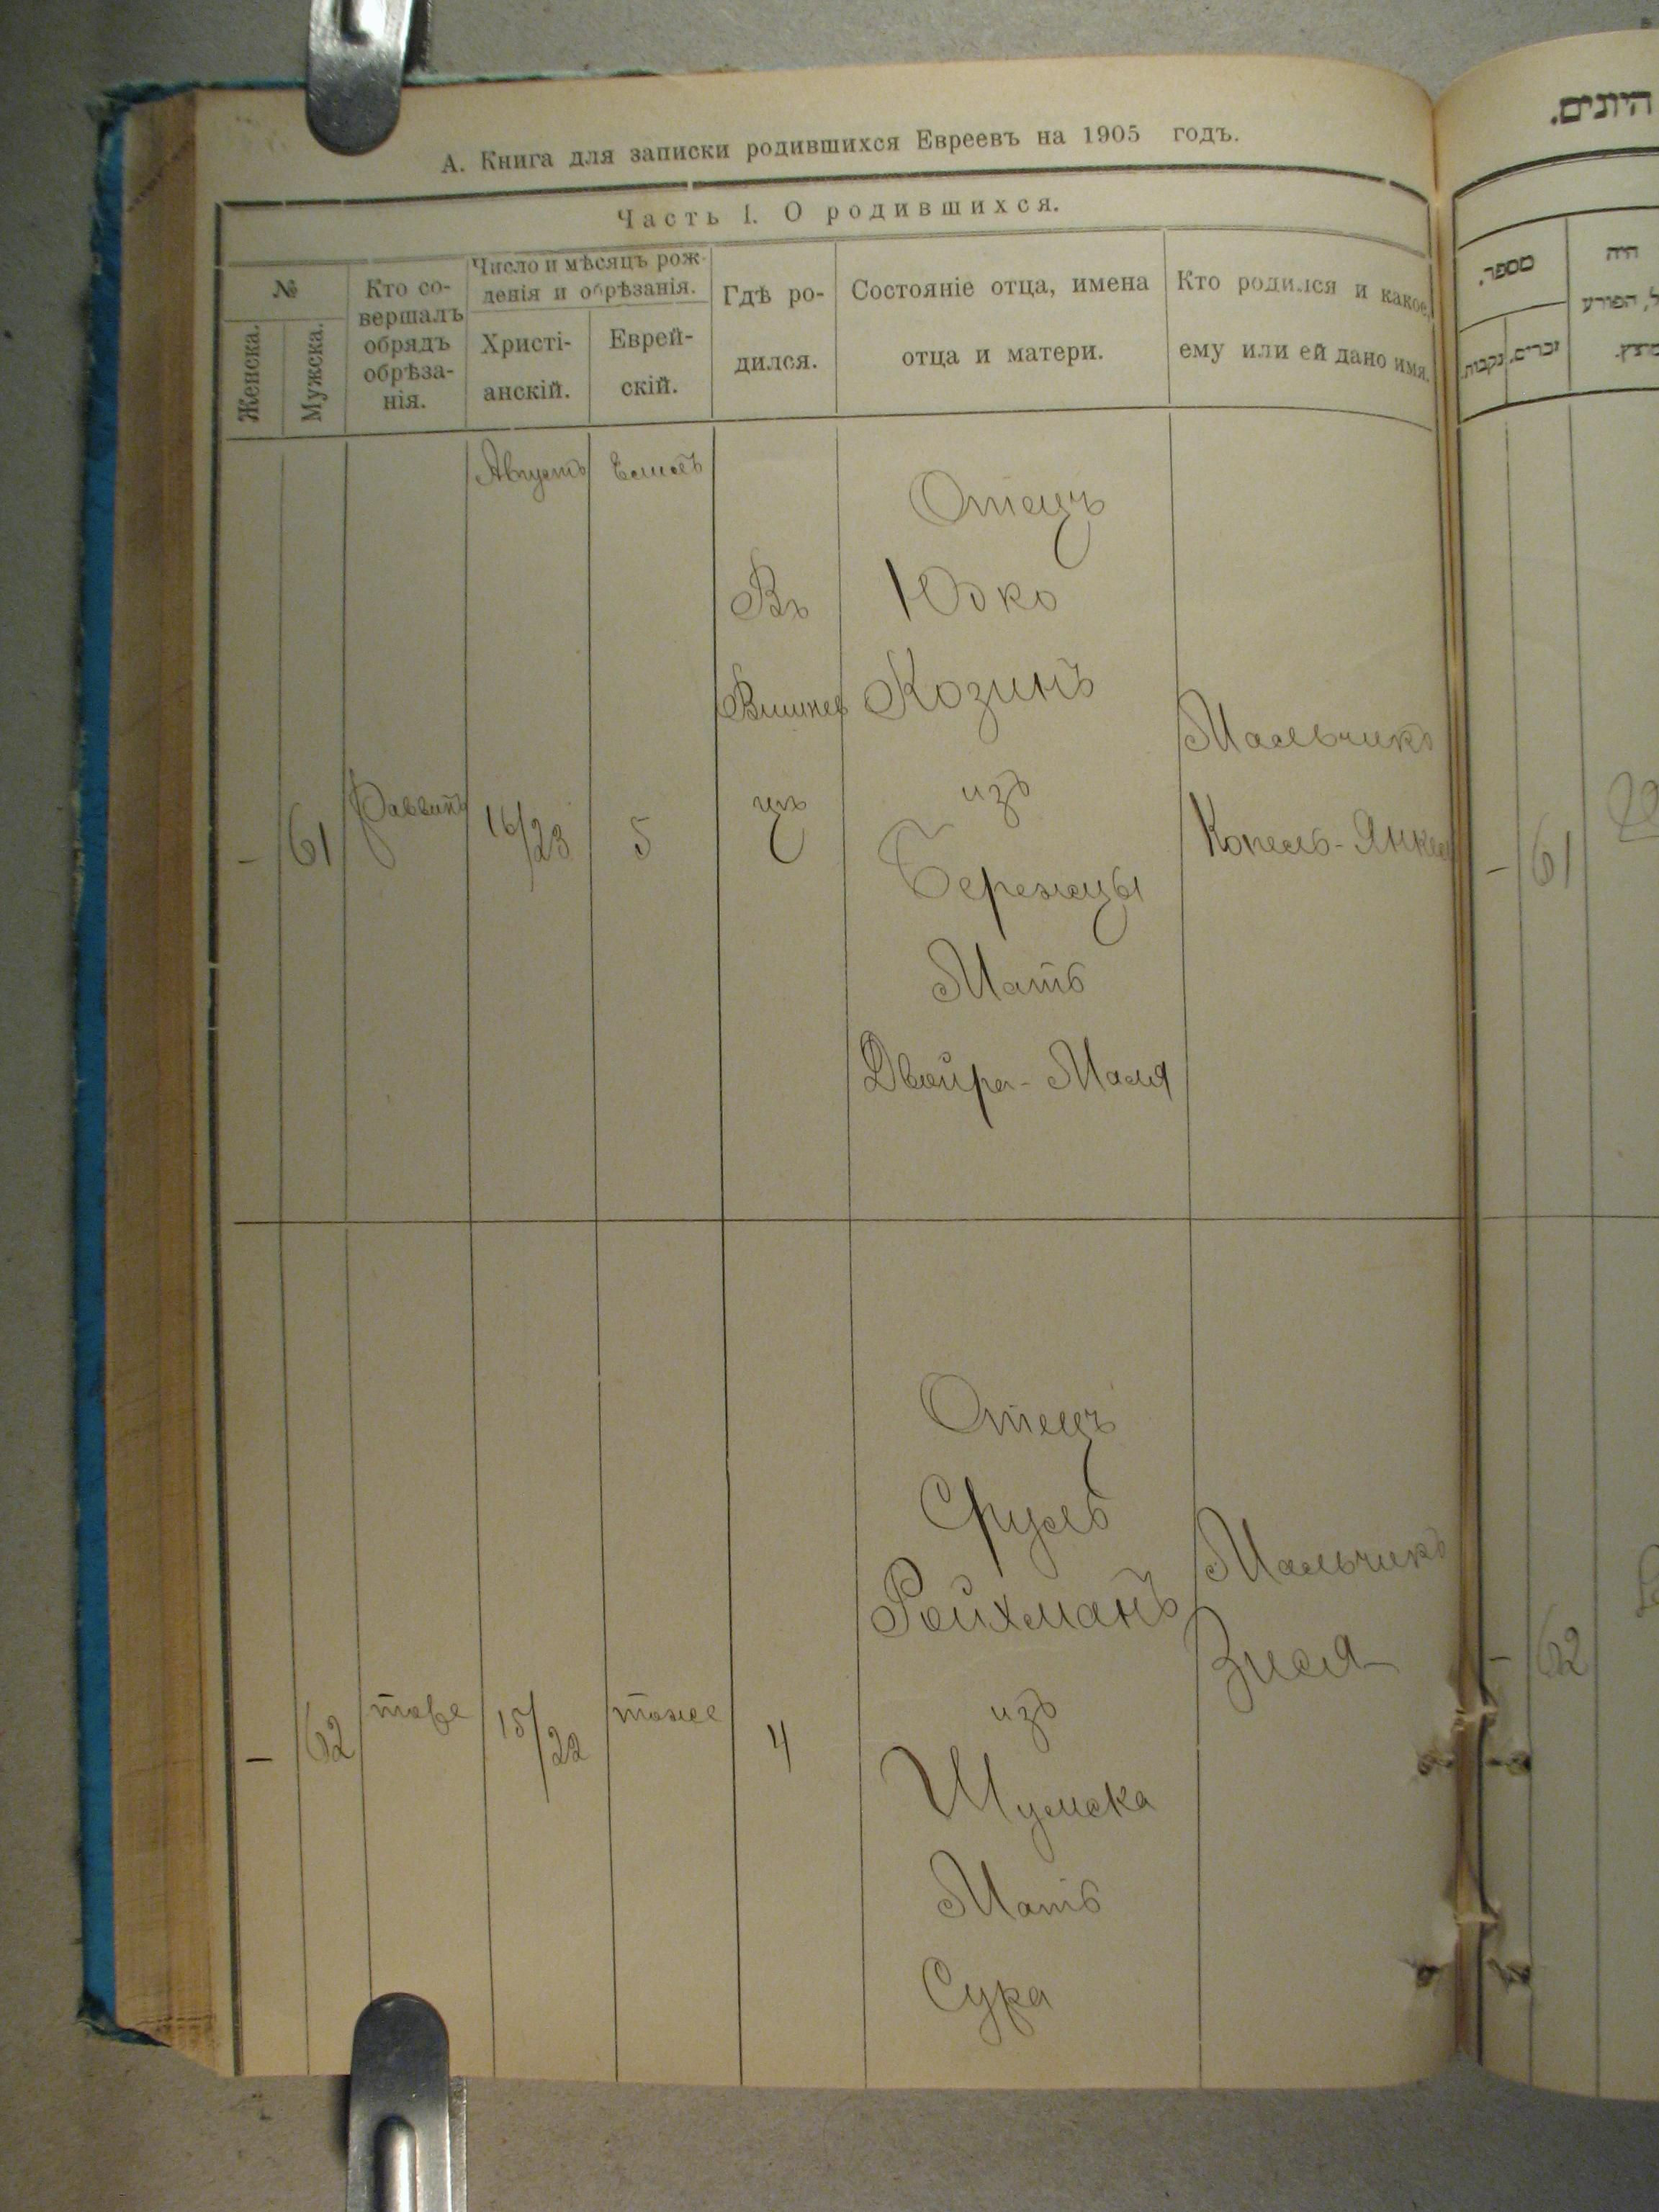 А. Книга для записки родившихся Евреевъ на 1905 годъ.
Часть I. О родившихся.
№
Женска.
Мужска.
Кто со-
вершалъ
обрядъ
обрѣза-
нія.
Число и мѣсяцъ рож-
денія и обрѣзанія.
Христі-
анскій.
Еврей-
скій.
Гдѣ ро-
дился.
Состояніе отца, имена
отца и матери.
Кто родился и какое,
ему или ей дано имя.
Августъ
–
61
Раввинъ
16/23
5
Въ
Вишнев
цѣ
Отецъ
Юдко
Козинъ
изъ
Бережцы
Мать
Двойра-Маля
Мальчикъ
Копель-Янкел
–
62
тоже
15/22
тоже
4
Отецъ
Сруль
Ройхманъ
изъ
Шумска
Мать
Сура
Мальчикъ
Зися
היתים.
מספר.
נקבות.
זכרים.
היה
– 61
– 62